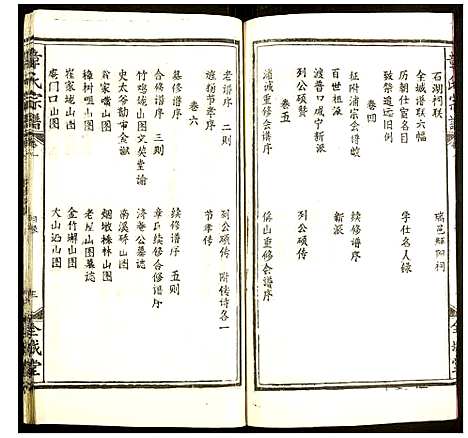 石湖祠联
全城谱联六幅
历朝仕宦名目
致祭追远旧例
卷四
征附浦宗会谱岐
百世祖派
渡普口咸宁新派
列公硕赞
卷五
浦城重修会谱序
瑞邑
祠
学仕名人录
续修谱序
新派
列公硕传
重修会谱序
老谱序 二则
旌扬节孝序
卷六
纂修谱序
合修谱序 三则
竹鸡垅山图
史太爷勘
翁家嘴山图
樟树咀山图
崔家垅山图
庵门口山图
列公硕传 附传诗各一
节孝传
续修谱序 五则
章氏续修合修谱序
济庵公墓志
南溪硚山图
烟墩株林山图
老屋山图墓志
金竹
山图
大山
山图
章氏宗谱
全城堂